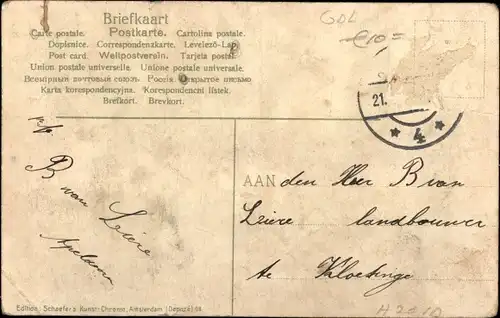 Briefkaart
Postkarte.
Carte postale. Cartolina postale.
Dopisnice. Correspondenzkarte. Levelező-Lap
Post card. Weltpostverein. Tarjeta postal.
Union postale universelle. Unione postale universale.
Всемірный почтовый союзъ. Россія. Открытое письмо
Karta korespondencyjna. Korespondenční lístek.
Brefkort. Brevkort.
GOL
€10,=
21.
* 4 *
p/p.
B van
Leiere
Apeldoorn
AAN den Heer B van
Leiere landbouwer
te Kloetinge
Edition: Schaefer's Kunst-Chromo, Amsterdam (Deposé)